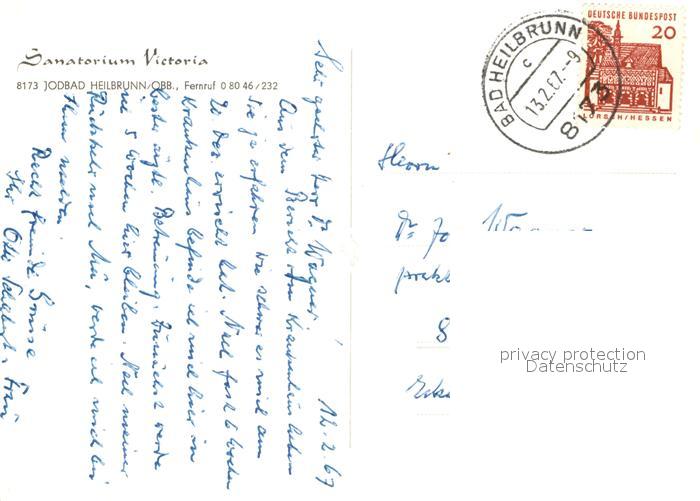 Sanatorium Victoria
8173 JODBAD HEILBRUNN/OBB., Fernruf 0 80 46/232
12.2.67
Sehr geehrter Herr Dr. Wagner!
Aus dem Bericht vom Krankenhaus haben
Sie ja erfahren wie schwer es mich am
20. Dez. erwischt hat. Nach fast 6 Wochen
Krankenhaus befinde ich mich hier in
bester ärztl. Betreuung. Zunächst werde
ich 5 Wochen hier bleiben. Nach meiner
Rückkehr nach Mü, werde ich mich bei
Ihnen melden.
Recht freundl. Grüsse
Ihr Otto u. Frau
BAD HEILBRUNN
c
13.2.67.-9
8173
DEUTSCHE BUNDESPOST
20
LORSCH/HESSEN
Herrn
Dr. Jo Wagner
prakt
8
privacy protection
Datenschutz